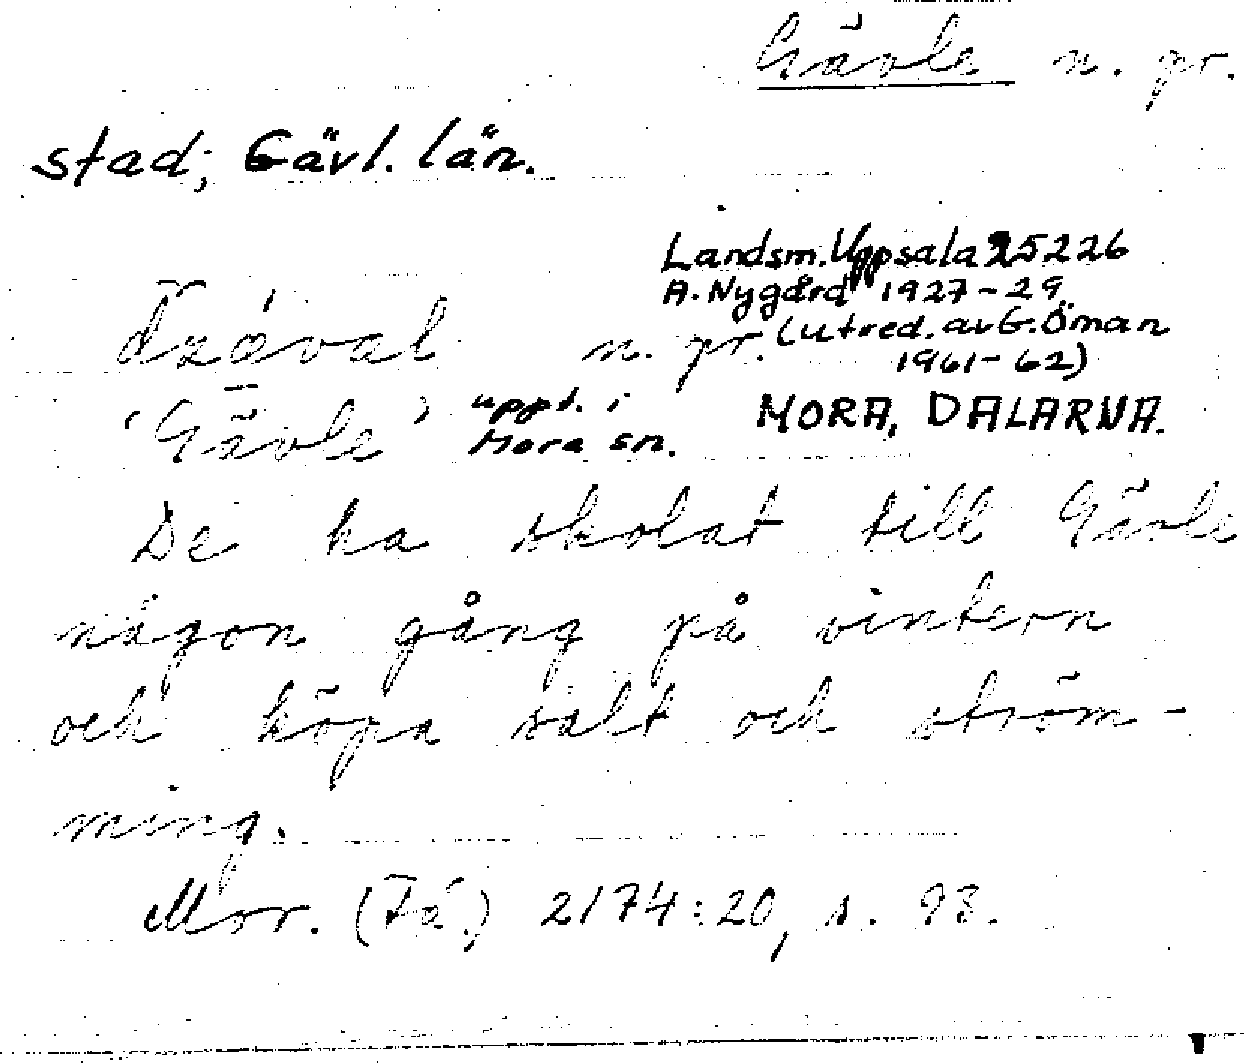 Gävle n. pr.
stad; Gävl. län.
Landsm. Uppsala 25226
A. Nygård 1927-29
(utred. av G. Öman
1961-62)
n. pr.
'Gävle' uppt. i
Mora sn.
MORA, DALARNA.
De ha skolat till Gävle
någon gång på vintern
och köpa salt och ström-
ming.
Mor. (Få) 2174:20, s. 93.